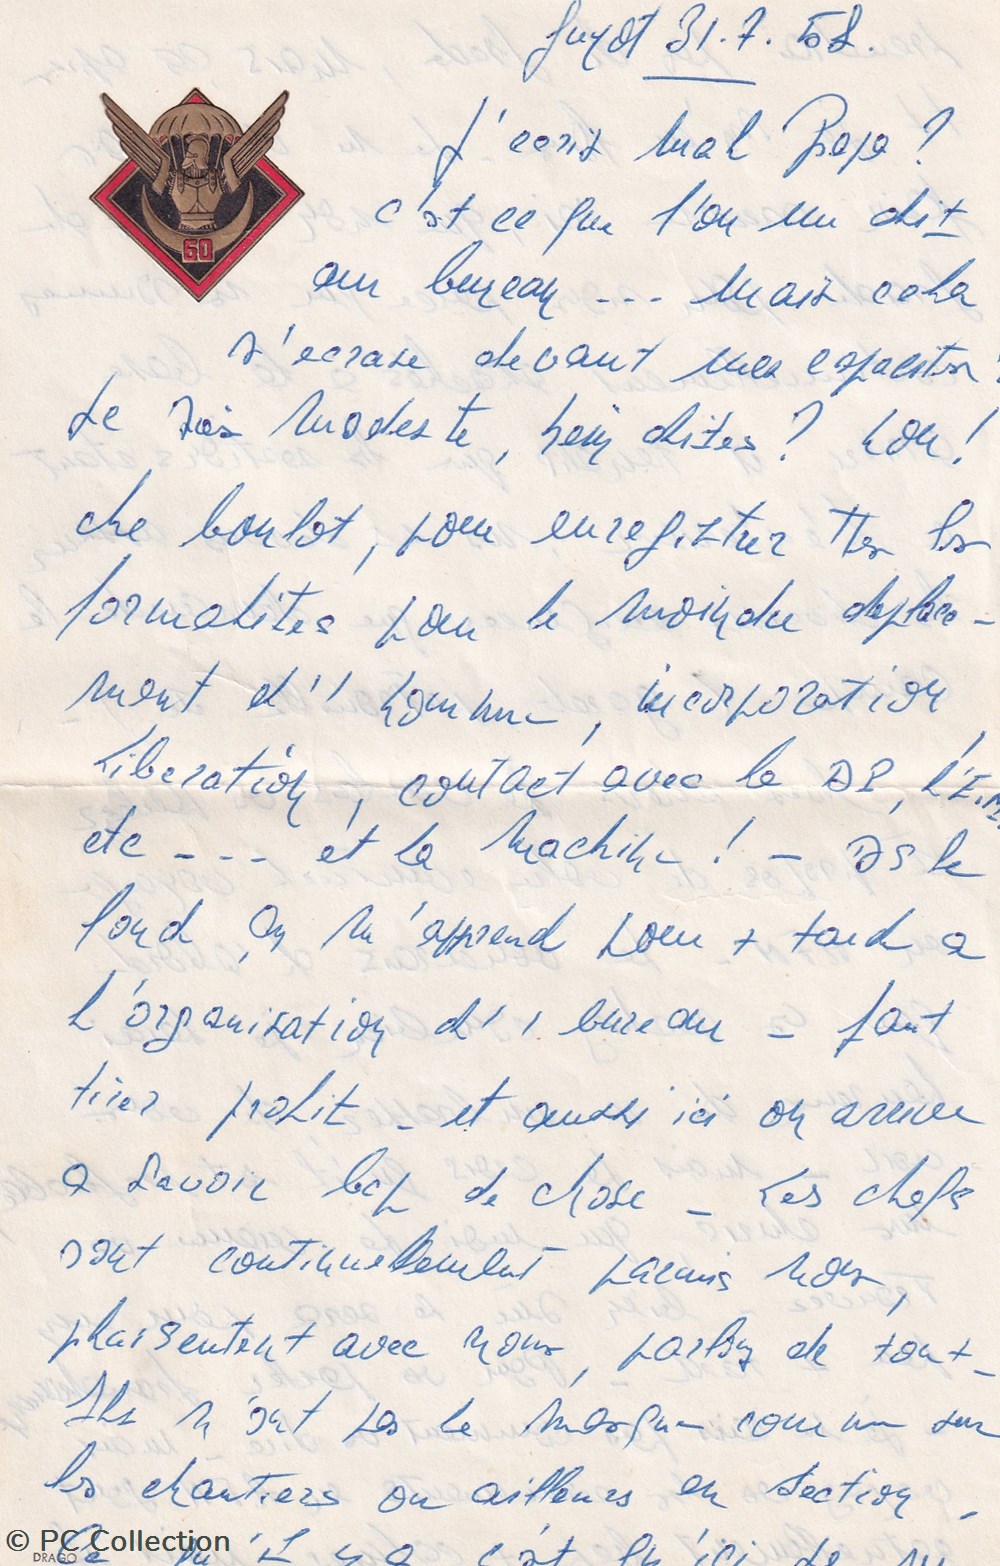 Guyot 31.7.58.
J'écris mal Papa ?
c'est ce que l'on me dit
au bureau --- Mais cela
s'ecrase devant mes capacités !
Je suis modeste, hein dites ? Non !
du boulot, pour enregistrer ttes les
formalites pour le moindre deplace-
ment d'1 homme, incorporation,
Liberation, contact avec la DP, L'E.M
etc --- et la machine ! - DS le
fond, on m'apprend pour + tard a
L'organisation d'1 bureau - faut
tirer profit - et aussi ici on arrive
a savoir bcp de chose - Les chefs
sont continuellement parmis nous,
plaisentent avec nous, parlons de tout -
Ils n'ont pas le masque comme sur
les chantiers ou ailleurs en Section -
Ce qu'il y a c'est qu'ici
60
DRAGO
© PC Collection